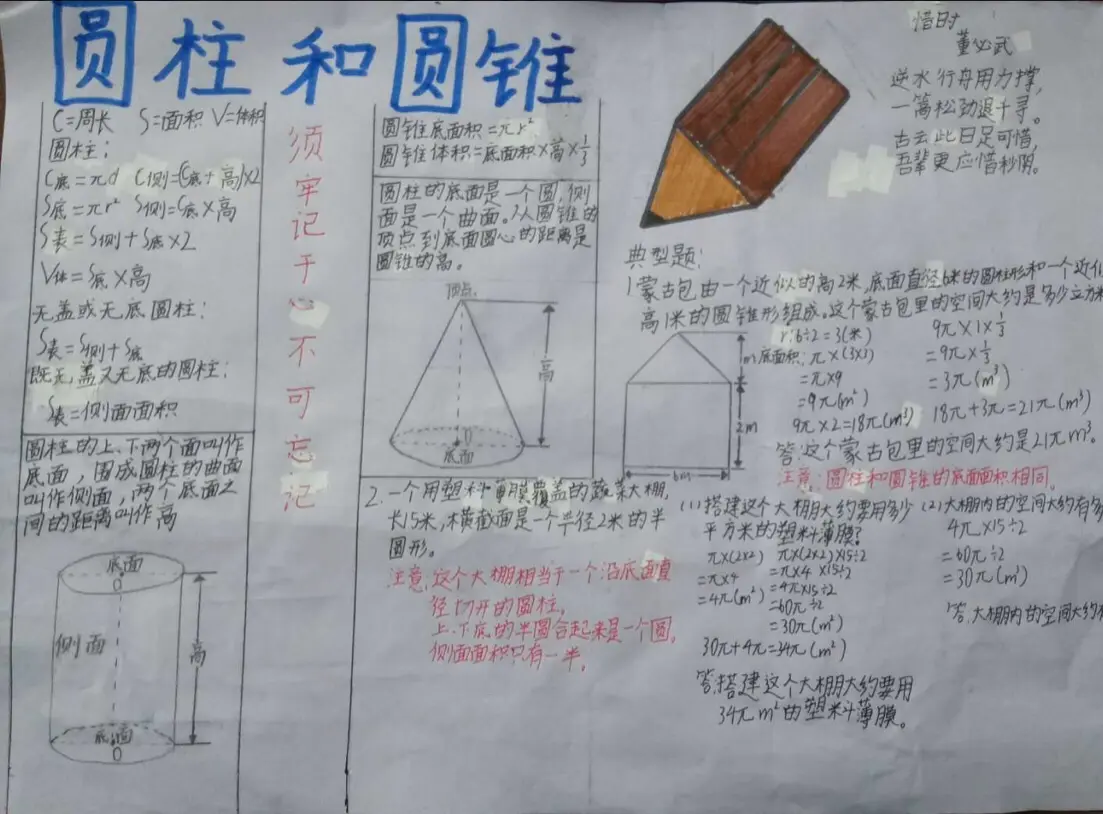 圆柱和圆锥
C=周长 S=面积 V=体积
圆柱：
C底=πd C侧=(C底+高)×2
S底=πr² S侧=C底×高
S表=S侧+S底×2
V体=S底×高
无盖或无底圆柱：
S表=S侧+S底
既无盖又无底的圆柱：
S表=侧面面积
圆柱的上、下两个面叫作
底面，围成圆柱的曲面
叫作侧面，两个底面之
间的距离叫作高
底面
O
侧面
高
底面
O
须牢记于心不可忘记
圆锥底面积=πr²
圆锥体积=底面积×高×1/3
圆柱的底面是一个圆，侧
面是一个曲面。从圆锥的
顶点到底面圆心的距离是
圆锥的高。
顶点
高
O
底面
惜时
董必武
逆水行舟用力撑，
一篙松劲退千寻。
古云此日足可惜，
吾辈更应惜秒阴。
典型题：
1.蒙古包由一个近似的高2米，底面直径6米的圆柱形和一个近似
高1米的圆锥形组成。这个蒙古包里的空间大约是多少立方米
1m
2m
6m
r:6÷2=3(米)
底面积：π×(3×3)
=π×9
=9π(m²)
9π×2=18π(m³)
9π×1×1/3
=9π×1/3
=3π(m³)
18π+3π=21π(m³)
答：这个蒙古包里的空间大约是21πm³。
注意：圆柱和圆锥的底面面积相同。
2.一个用塑料薄膜覆盖的蔬菜大棚，
长15米，横截面是一个半径2米的半
圆形。
注意：这个大棚相当于一个沿底面直
径切开的圆柱。
上、下底的半圆合起来是一个圆。
侧面面积只有一半。
(1)搭建这个大棚大约要用多少
平方米的塑料薄膜？
π×(2×2)
=π×4
=4π(m²)
π×(2×2)×15÷2
=π×4×15÷2
=4π×15÷2
=60π÷2
=30π(m²)
30π+4π=34π(m²)
答：搭建这个大棚大约要用
34πm²的塑料薄膜。
(2)大棚内的空间大约有多
4π×15÷2
=60π÷2
=30π(m³)
答：大棚内的空间大约有